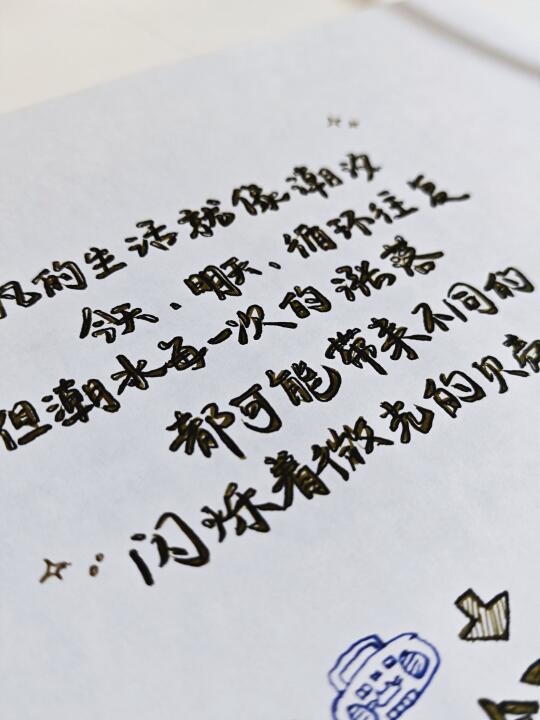 凡的生活就像潮汐
今天、明天、循环往复
但潮水每一次的涨落
都可能带来不同的
闪烁着微光的贝壳